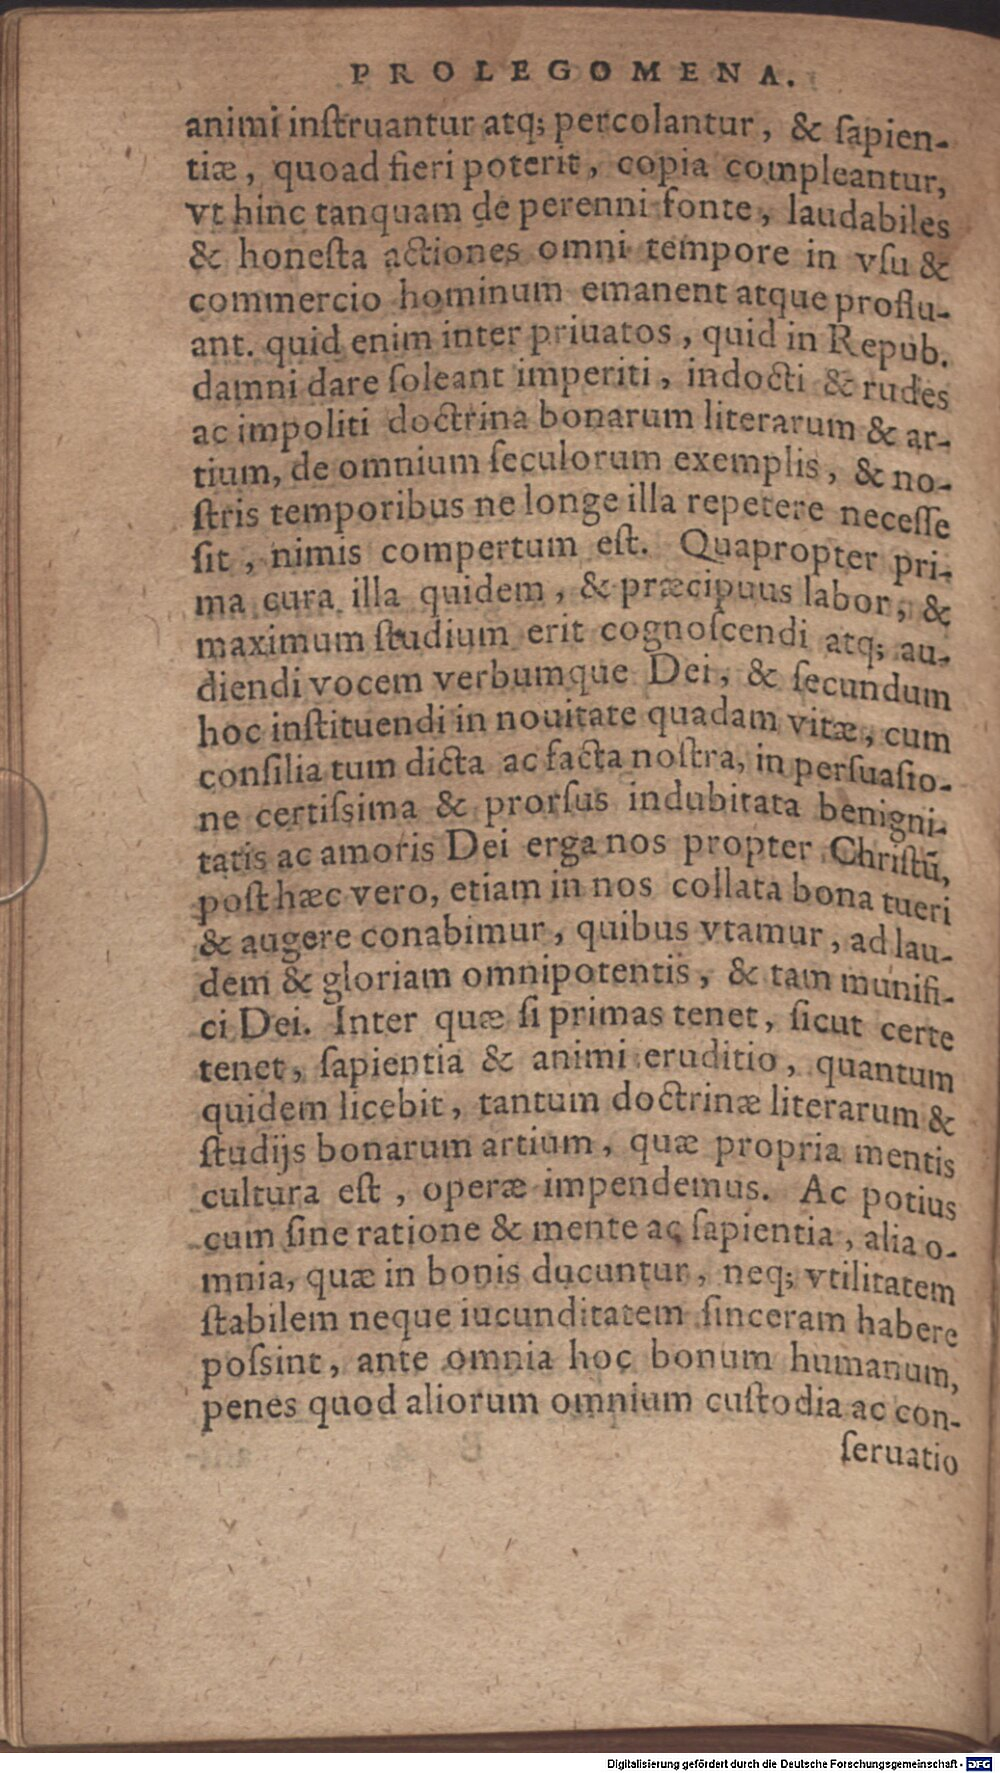 PROLEGOMENA.
animi inſtruantur atq; percolantur, & ſapien-
tiæ, quoad fieri poterit, copia compleantur,
vt hinc tanquam de perenni fonte, laudabiles
& honeſta actiones omni tempore in vſu &
commercio hominum emanent atque proflu-
ant. quid enim inter priuatos, quid in Repub.
damni dare ſoleant imperiti, indocti & rudes
ac impoliti doctrina bonarum literarum & ar-
tium, de omnium ſeculorum exemplis, & no-
ſtris temporibus ne longe illa repetere neceſſe
ſit, nimis compertum eſt. Quapropter pri-
ma cura illa quidem, & præcipuus labor, &
maximum ſtudium erit cognoſcendi atq; au-
diendi vocem verbumque Dei, & ſecundum
hoc inſtituendi in nouitate quadam vitæ, cum
conſilia tum dicta ac facta noſtra, in perſuaſio-
ne certiſsima & prorſus indubitata benigni-
tatis ac amoris Dei erga nos propter Chriſtū,
poſt hæc vero, etiam in nos collata bona tueri
& augere conabimur, quibus vtamur, ad lau-
dem & gloriam omnipotentis, & tam munifi-
ci Dei. Inter quæ ſi primas tenet, ſicut certe
tenet, ſapientia & animi eruditio, quantum
quidem licebit, tantum doctrinæ literarum &
ſtudijs bonarum artium, quæ propria mentis
cultura eſt, operæ impendemus. Ac potius
cum ſine ratione & mente ac ſapientia, alia o-
mnia, quæ in bonis ducuntur, neq; vtilitatem
ſtabilem neque iucunditatem ſinceram habere
poſsint, ante omnia hoc bonum humanum,
penes quod aliorum omnium cuſtodia ac con-
ſeruatio
Digitalisierung gefördert durch die Deutsche Forschungsgemeinschaft - DFG